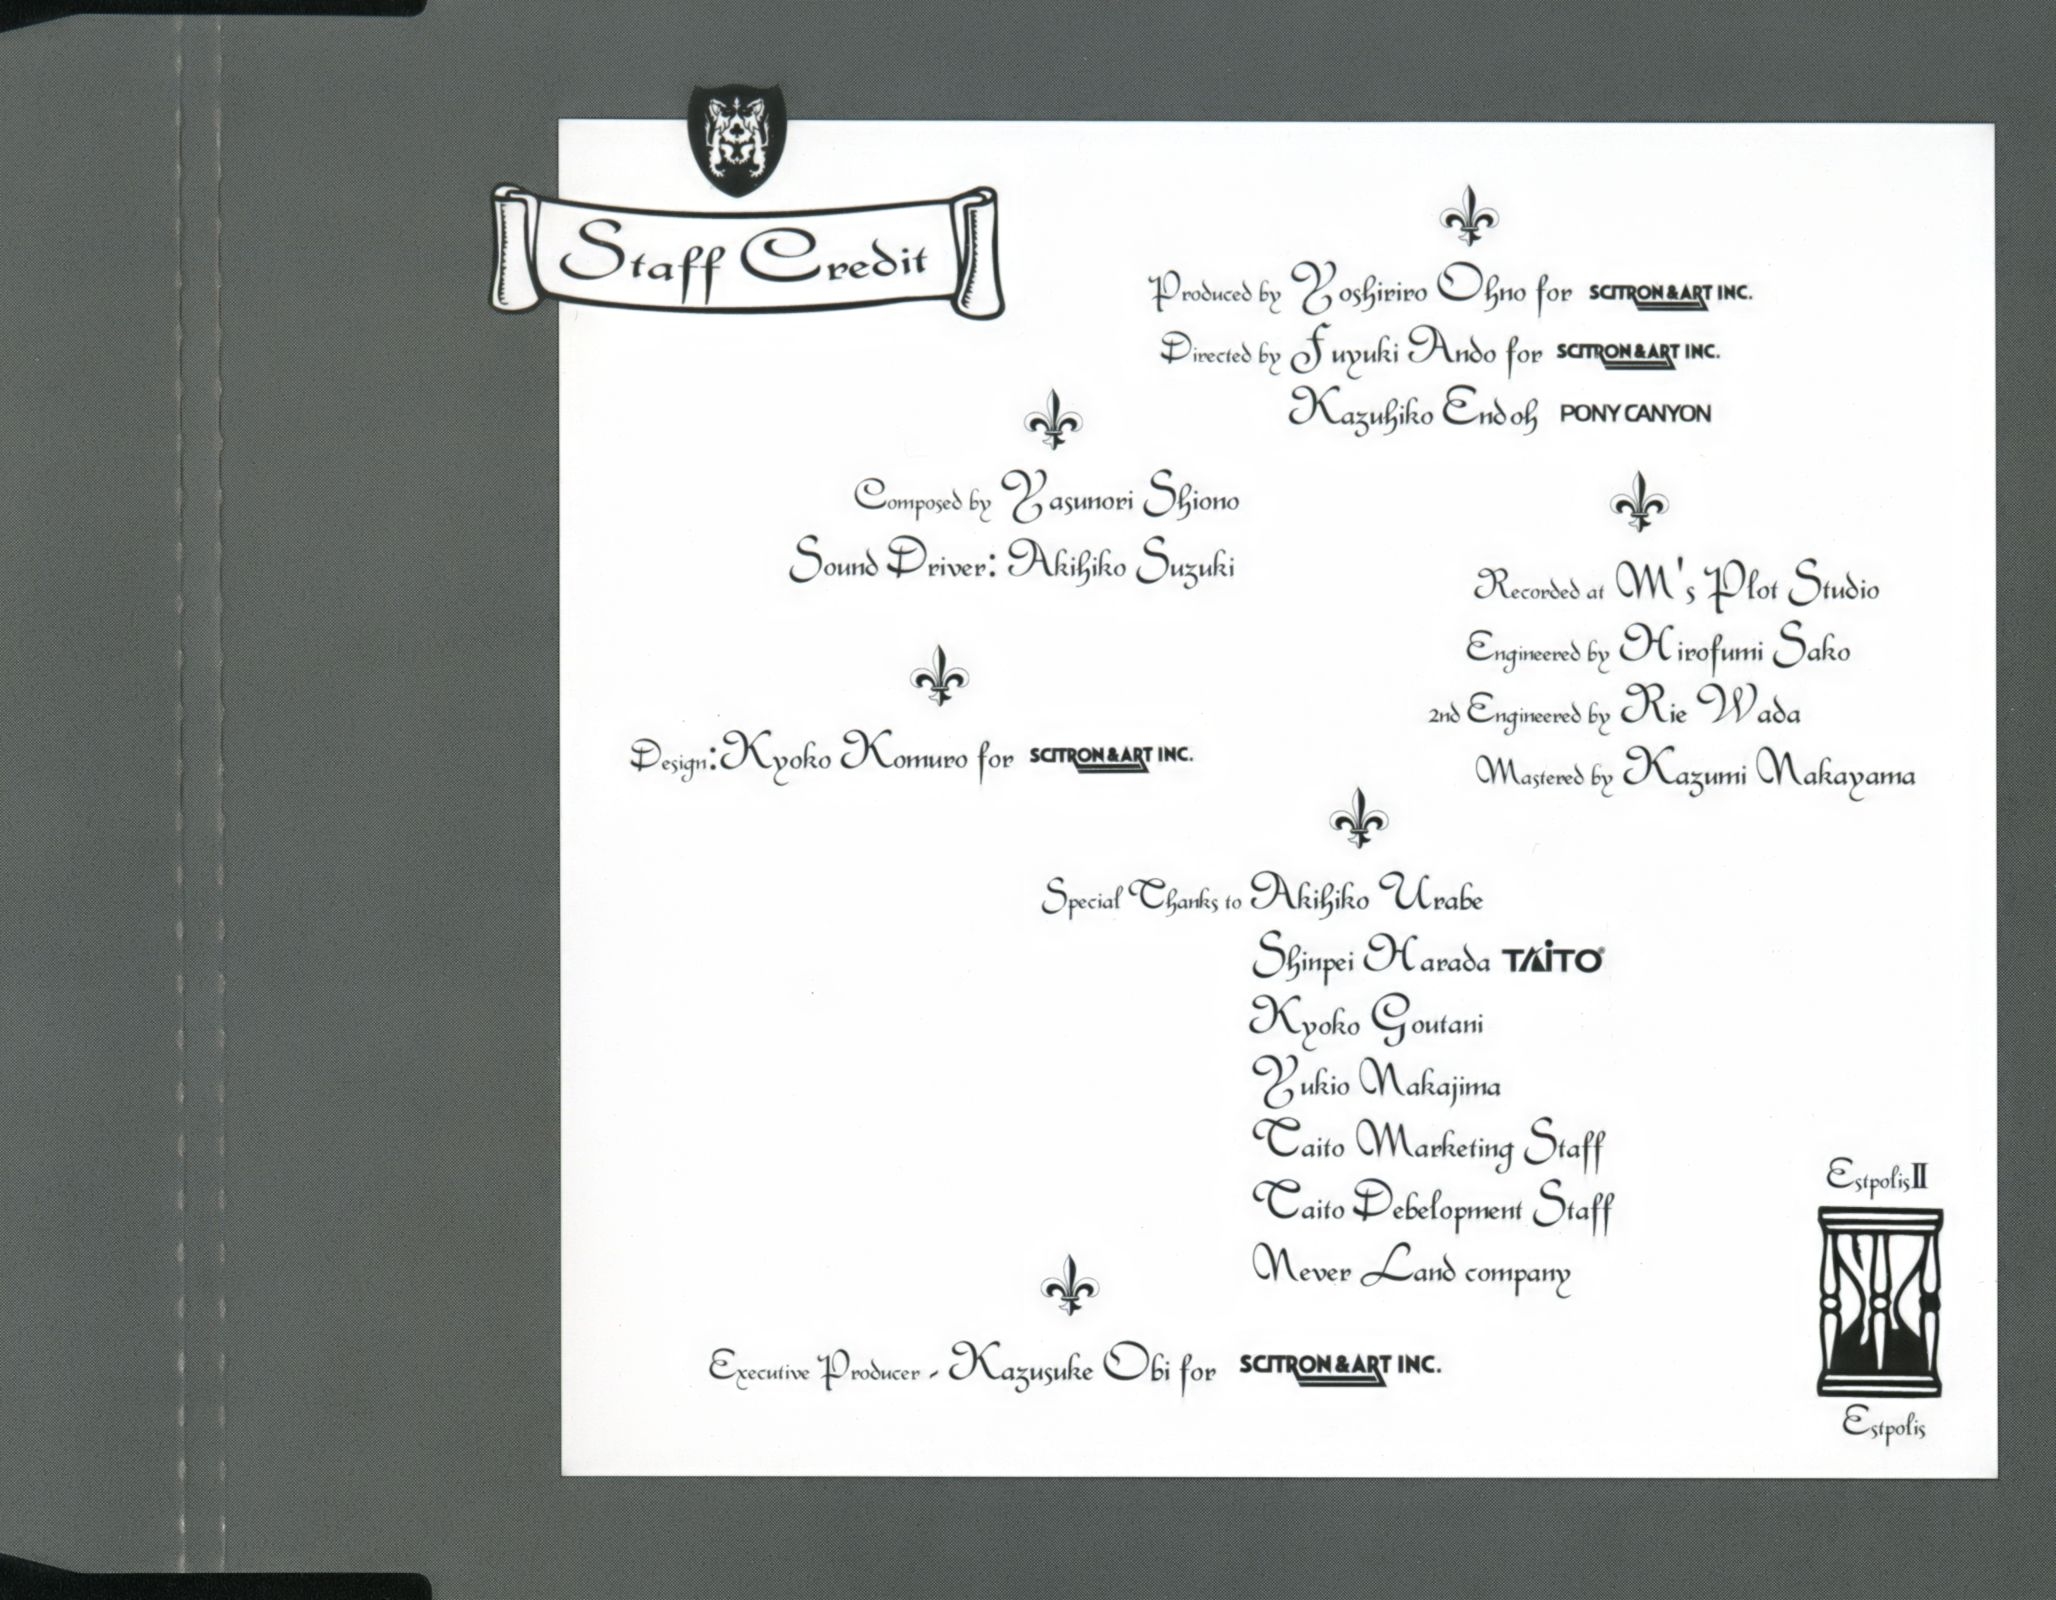 Staff Credit
Produced by Yoshiriro Ohno for SCITRON & ART INC.
Directed by Fuyuki Ando for SCITRON & ART INC.
Kazuhiko Endoh PONY CANYON
Composed by Yasunori Shiono
Sound Driver: Akihiko Suzuki
Recorded at M's Plot Studio
Engineered by Hirofumi Sako
2nd Engineered by Rie Wada
Mastered by Kazumi Nakayama
Design: Kyoko Komuro for SCITRON & ART INC.
Special Thanks to Akihiko Urabe
Shinpei Harada TAITO®
Kyoko Goutani
Yukio Nakajima
Taito Marketing Staff
Taito Debelopment Staff
Never Land company
Executive Producer - Kazusuke Obi for SCITRON & ART INC.
Estpolis II
Estpolis